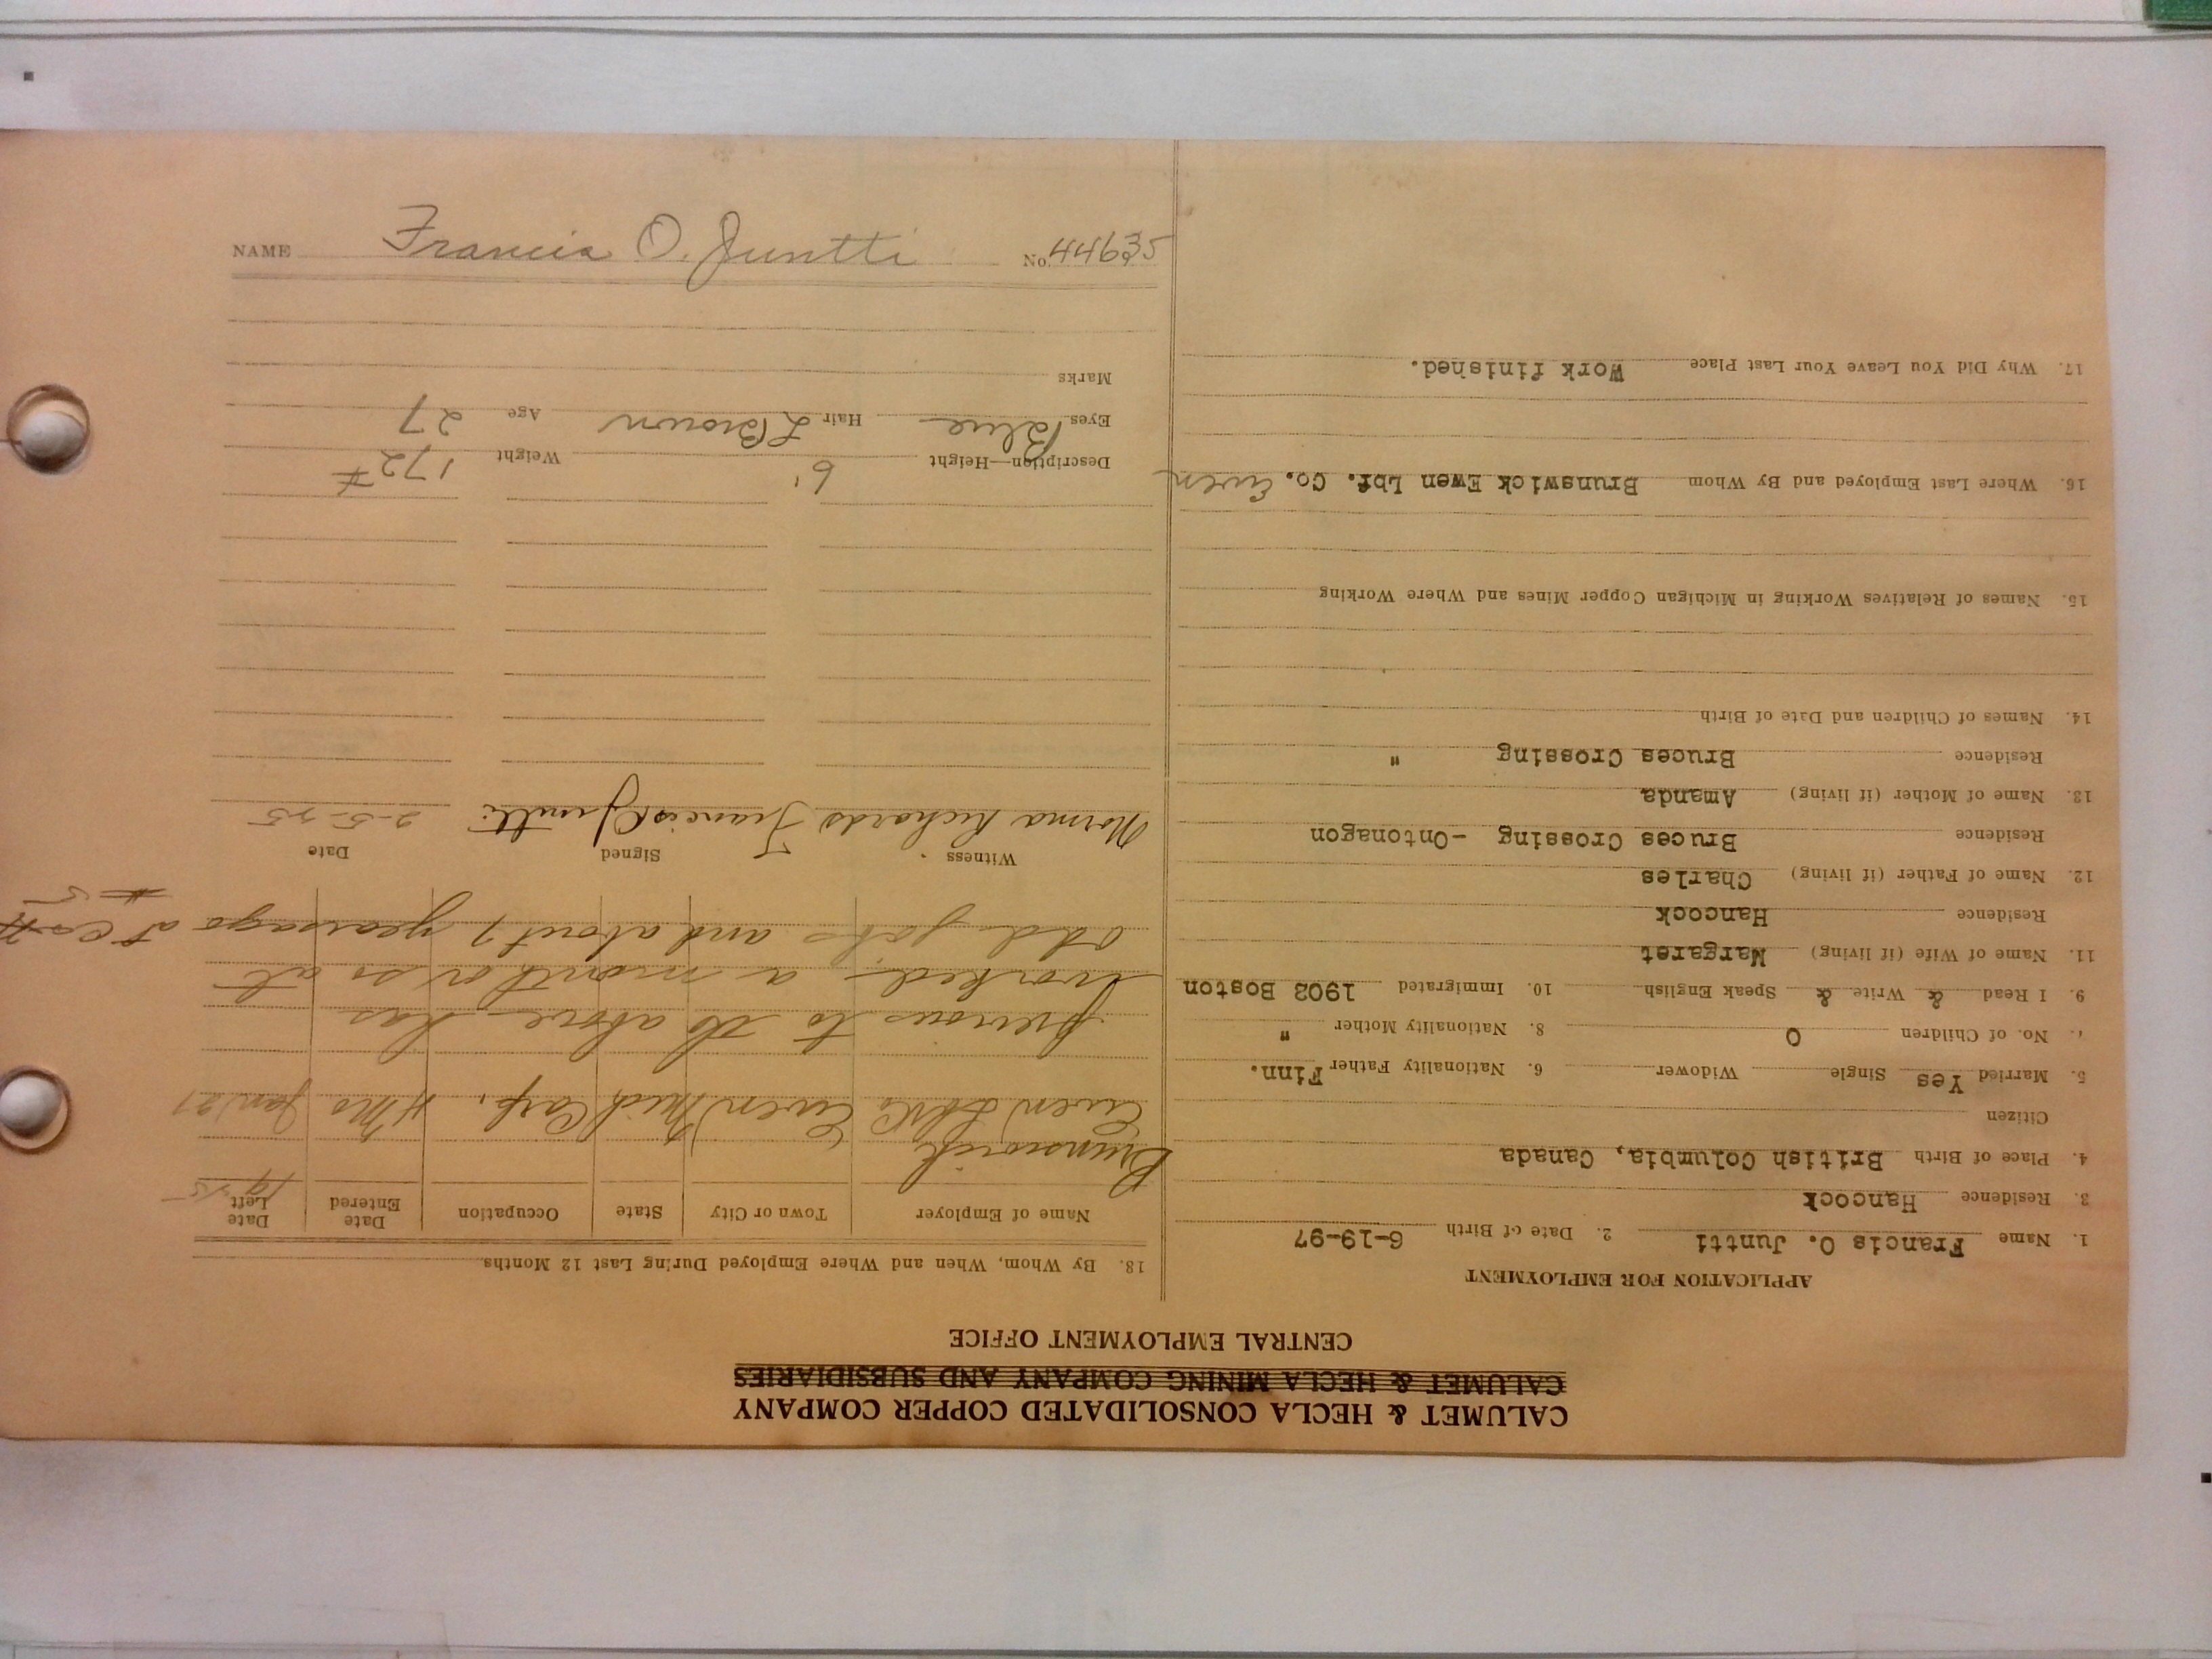 CALUMET & HECLA CONSOLIDATED COPPER COMPANY
CALUMET & HECLA MINING COMPANY AND SUBSIDIARIES
CENTRAL EMPLOYMENT OFFICE
APPLICATION FOR EMPLOYMENT
1. Name Francis O. Juntti 2. Date of Birth 6-19-97
3. Residence Hancock
4. Place of Birth British Columbia, Canada
Citizen
5. Married Yes Single Widower 6. Nationality Father Finn.
7. No. of Children 0 8. Nationality Mother "
9. I Read & Write & Speak English 10. Immigrated 1903 Boston
11. Name of Wife (if living) Margaret
Residence Hancock
12. Name of Father (if living) Charles
Residence Bruces Crossing -Ontonagon
13. Name of Mother (if living) Amanda
Residence Bruces Crossing "
14. Names of Children and Date of Birth
15. Names of Relatives Working in Michigan Copper Mines and Where Working
16. Where Last Employed and By Whom Brunswick Ewen Lbr. Co. Ewen
17. Why Did You Leave Your Last Place Work finished.
18. By Whom, When and Where Employed During Last 12 Months
Name of Employer Town or City State Occupation Date Entered Date Left
Brunswick 1925
Ewen Ewen Mich Carp. 4 Mo Jan 21
previous to the above has
worked a month or so at
odd jobs and about 7 years ago at C & H
Witness Signed Date
Norma Richards Francis O Juntti 2-5-25
Description—Height 6' Weight 172 #
Eyes Blue Hair L Brown Age 27
Marks
NAME Francis O. Juntti No. 44635